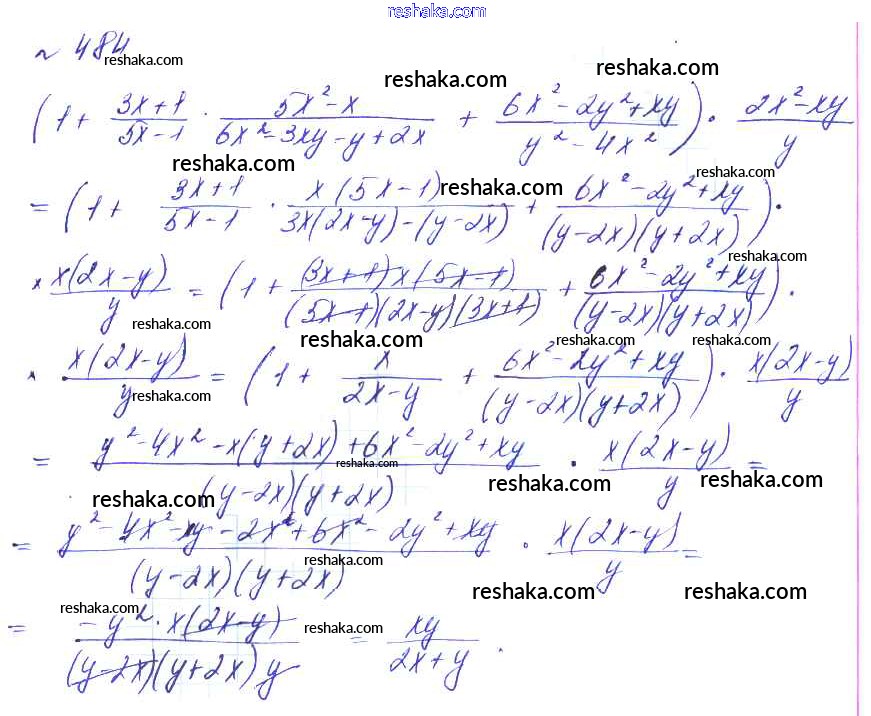 reshaka.com
~ 484
reshaka.com
reshaka.com
reshaka.com
(1 + (3x+1)/(5x-1) · (5x²-x)/(6x²-3xy-y+2x) + (6x²-2y²+xy)/(y²-4x²)) · (2x²-xy)/y
reshaka.com
reshaka.com
reshaka.com
= (1 + (3x+1)/(5x-1) · x(5x-1)/(3x(2x-y)-(y-2x)) + (6x²-2y²+xy)/((y-2x)(y+2x))) ·
reshaka.com
× x(2x-y)/y = (1 + (3x+1)x(5x-1)/((5x-1)(2x-y)(3x+1)) + (6x²-2y²+xy)/((y-2x)(y+2x))) ·
reshaka.com
reshaka.com
reshaka.com
reshaka.com
× x(2x-y)/y = (1 + x/(2x-y) + (6x²-2y²+xy)/((y-2x)(y+2x))) · x(2x-y)/y
reshaka.com
= (y²-4x²-x(y+2x)+6x²-2y²+xy)/((y-2x)(y+2x)) · x(2x-y)/y =
reshaka.com
reshaka.com
reshaka.com
reshaka.com
= (y²-4x²-xy-2x²+6x²-2y²+xy)/((y-2x)(y+2x)) · x(2x-y)/y =
reshaka.com
reshaka.com
reshaka.com
reshaka.com
reshaka.com
= (-y²·x(2x-y))/((y-2x)(y+2x)y) = xy/(2x+y).